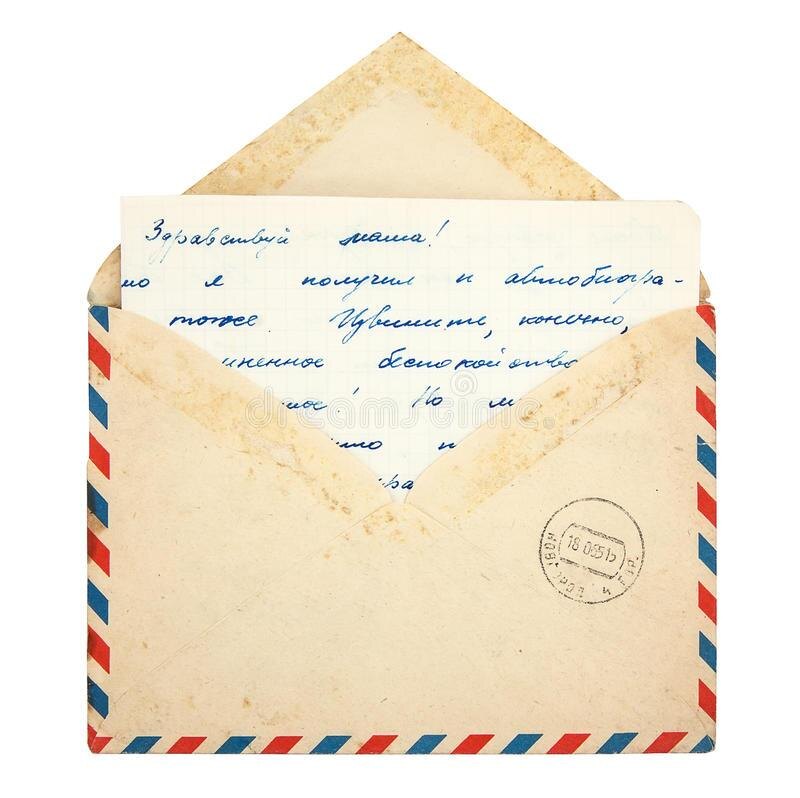 Здравствуй мама!
но я получил и автобиогра-
тоже. Извините, конечно,
иненное беспокойство
мое! Но м
что п
ра
dreamstime
18 0651 5